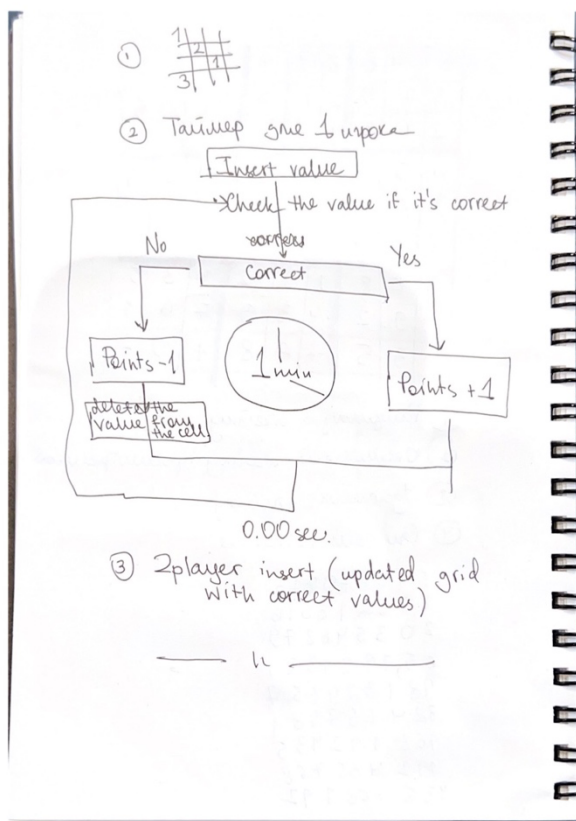 ①
1
2
1
3
② Таймер для 1 игрока
Insert value
Check the value if it's correct
No
Yes
Correct
Points -1
1 min
Points +1
delete the
value from
the cell
0.00 sec.
③ 2player insert (updated grid
with correct values)
— 〃 —